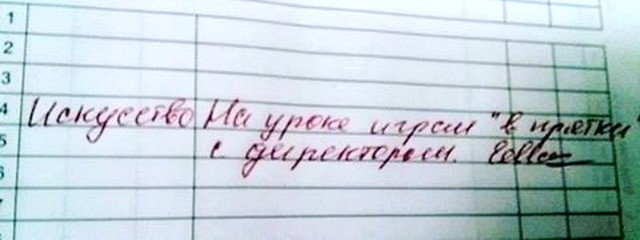 1
2
3
4 Искусство На уроке играл "в прятки"
5 с директором.
6
7